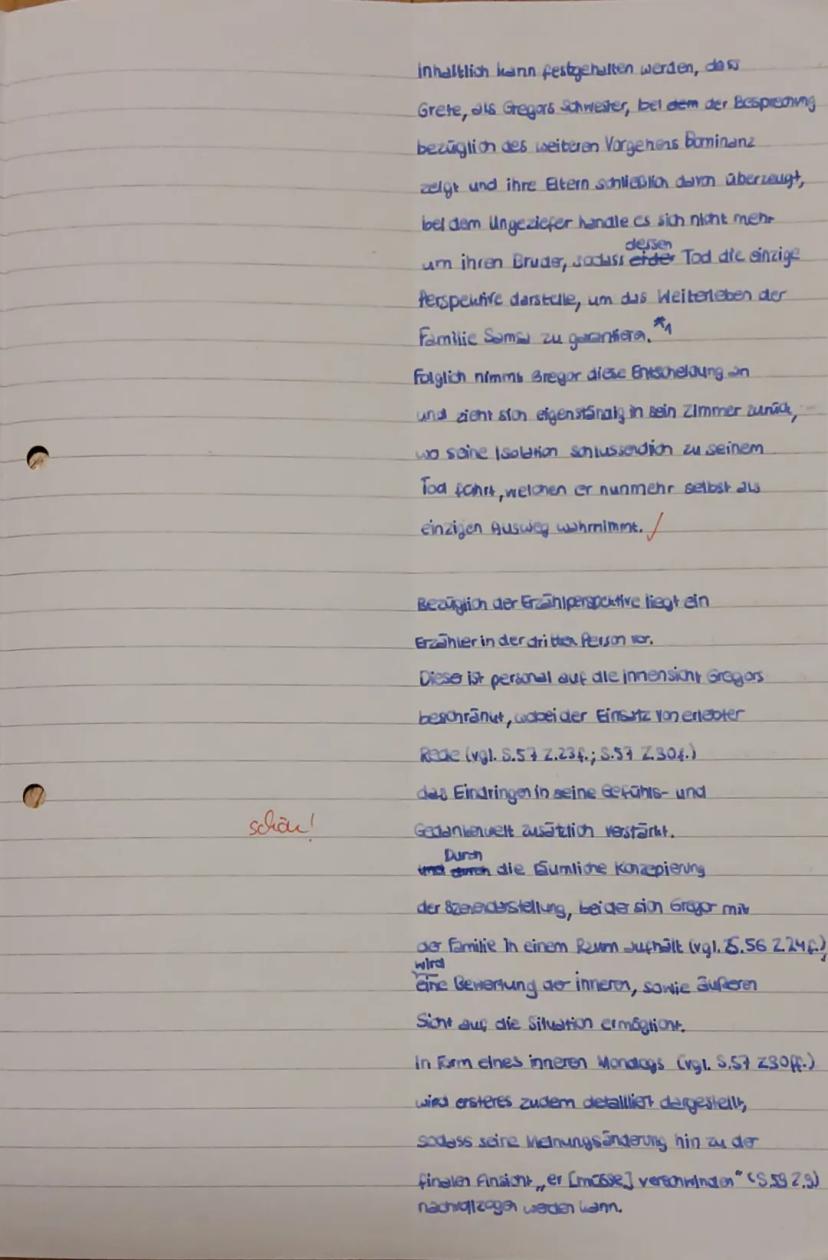 Inhaltlich kann festgehalten werden, dass
Grete, als Gregors Schwester, bei dem der Besprechung
bezüglich des weiteren Vorgehens Dominanz
zeigt und ihre Eltern schließlich davon überzeugt,
bei dem Ungeziefer handle es sich nicht mehr
dessen
um ihren Bruder, sodass Tod die einzige
Perspektive darstelle, um das Weiterleben der
Familie Samsa zu garantieren. *1
Folglich nimmt Gregor diese Entscheidung an
und zieht sich eigenständig in sein Zimmer zurück,
wo seine Isolation schlussendlich zu seinem
Tod führt, welchen er nunmehr selbst als
einzigen Ausweg wahrnimmt. /
Bezüglich der Erzählperspektive liegt ein
Erzähler in der dritten Person vor.
Dieser ist personal auf die Innensicht Gregors
beschränkt, wobei der Einsatz von erlebter
Rede (vgl. S.57 Z.23f.; S.57 Z.30f.)
das Eindringen in seine Gefühls- und
schön!
Gedankenwelt zusätzlich verstärkt.
Durch
und durch die räumliche Konzepierung
der Szenendarstellung, bei der sich Gregor mit
der Familie in einem Raum aufhält (vgl. S.56 Z.24f.),
wird
eine Bewertung der inneren, sowie äußeren
Sicht auf die Situation ermöglicht.
In Form eines inneren Monologs (vgl. S.57 Z30ff.)
wird ersteres zudem detailliert dargestellt,
sodass seine Meinungsänderung hin zu der
finalen Ansicht „er [müsse] verschwinden" (S.59 Z.9)
nachvollzogen werden kann.